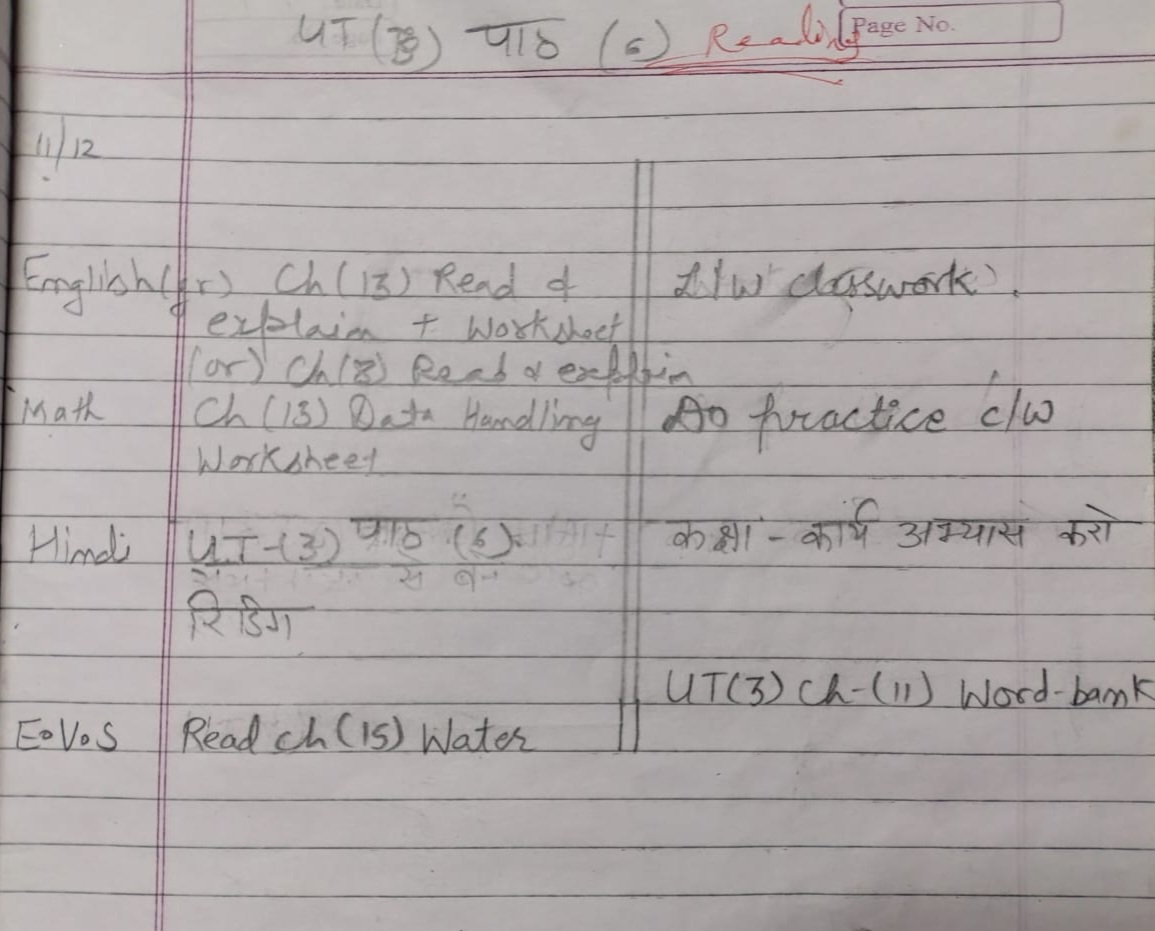 UT (3) पाठ (6) Reading
Page No.
11/12
English (gr) Ch (13) Read & L/W classwork.
explain + Worksheet
(or) Ch (8) Read & explain
Math Ch (13) Data Handling Do practice c/w
Worksheet
Hindi UT-(3) पाठ (6) कक्षा - कार्य अभ्यास करो
रिडिंग
UT(3) Ch-(11) Word-bank
E.V.S Read ch (15) Water